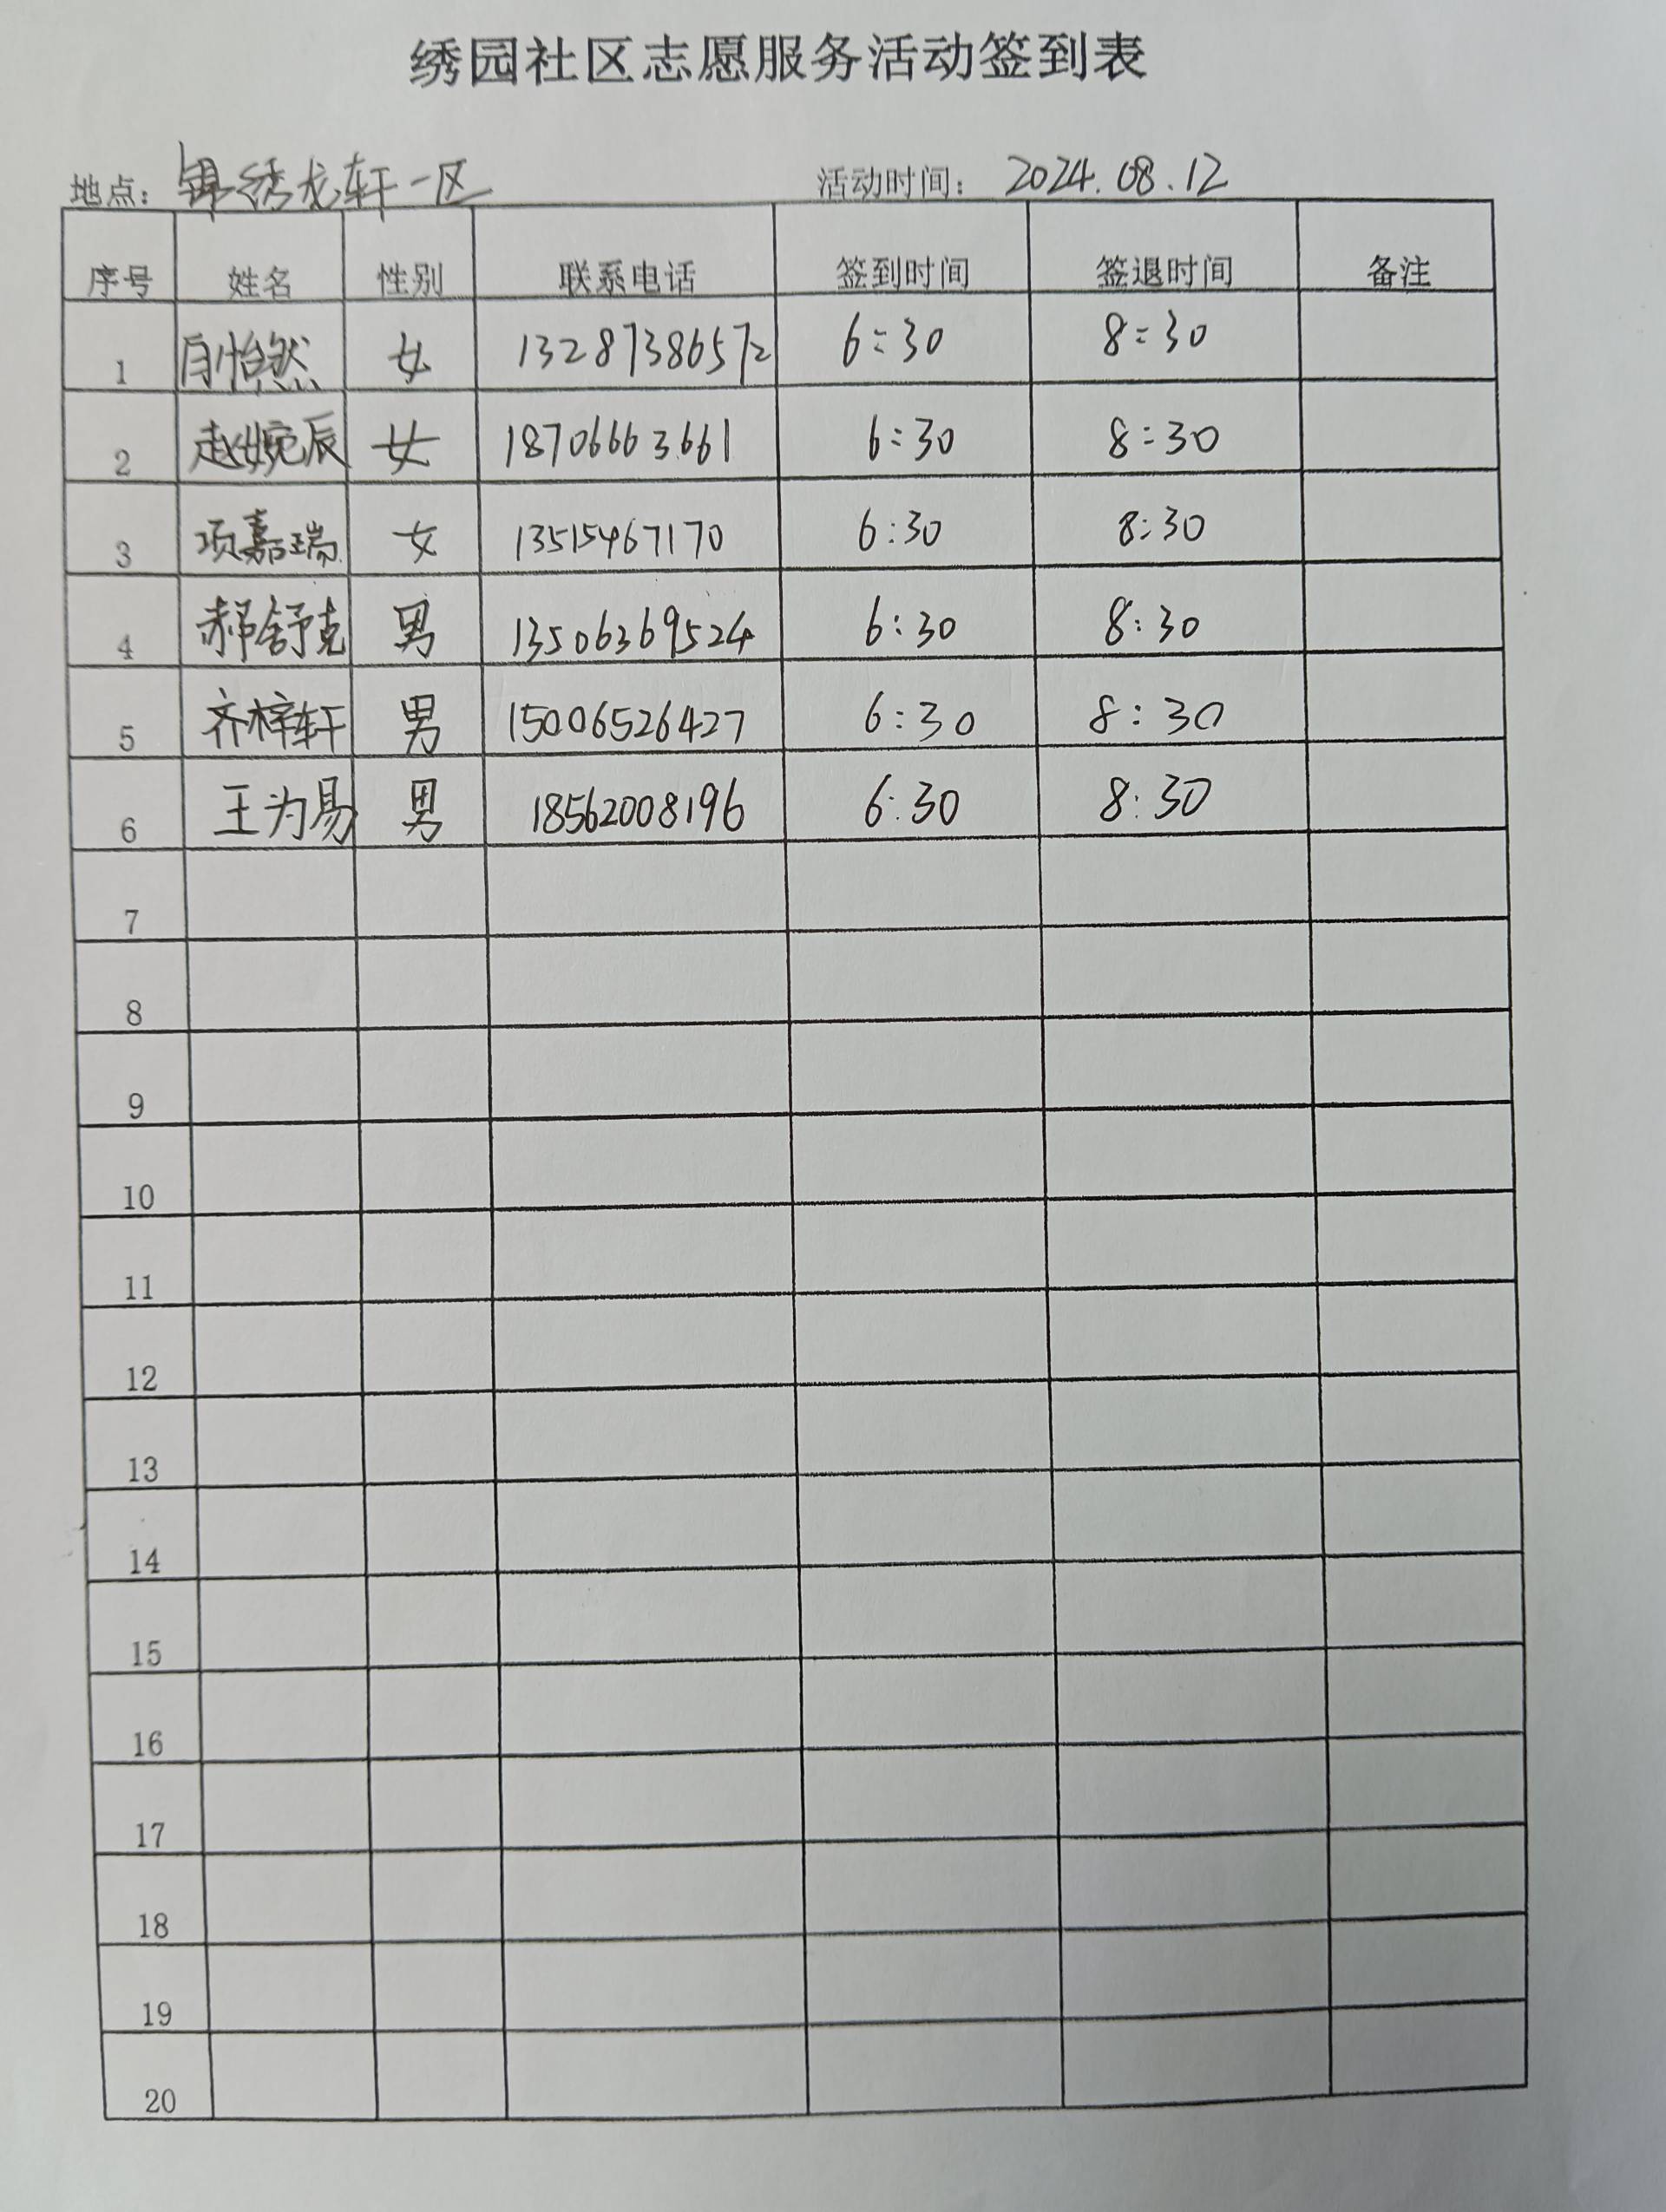 绣园社区志愿服务活动签到表
地点: 锦绣龙轩一区 活动时间: 2024.08.12
序号 姓名 性别 联系电话 签到时间 签退时间 备注
1 怡然 女 13287386572 6:30 8:30
2 赵婉辰 女 18706663661 6:30 8:30
3 项嘉瑞 女 13515467170 6:30 8:30
4 郝舒克 男 13506369524 6:30 8:30
5 齐梓轩 男 15006526427 6:30 8:30
6 王为易 男 18562008196 6:30 8:30
7
8
9
10
11
12
13
14
15
16
17
18
19
20